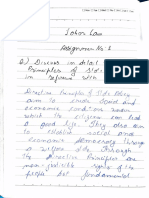 Labour Law
Assignment No: 2
Q.) Discuss in detail
Principles of
in with
Directive Principles of State Policy
aim to create social and
economic conditions under
which the citizens can have
a good life. They also aim
to establish social and
economic democracy through
a welfare state. Though
the Directive Principles are
non- rights of the
people but fundamental